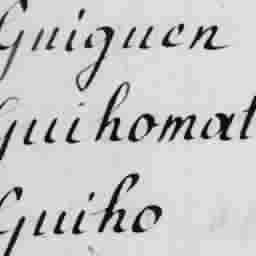 Guiguen
Guihomat
Guiho